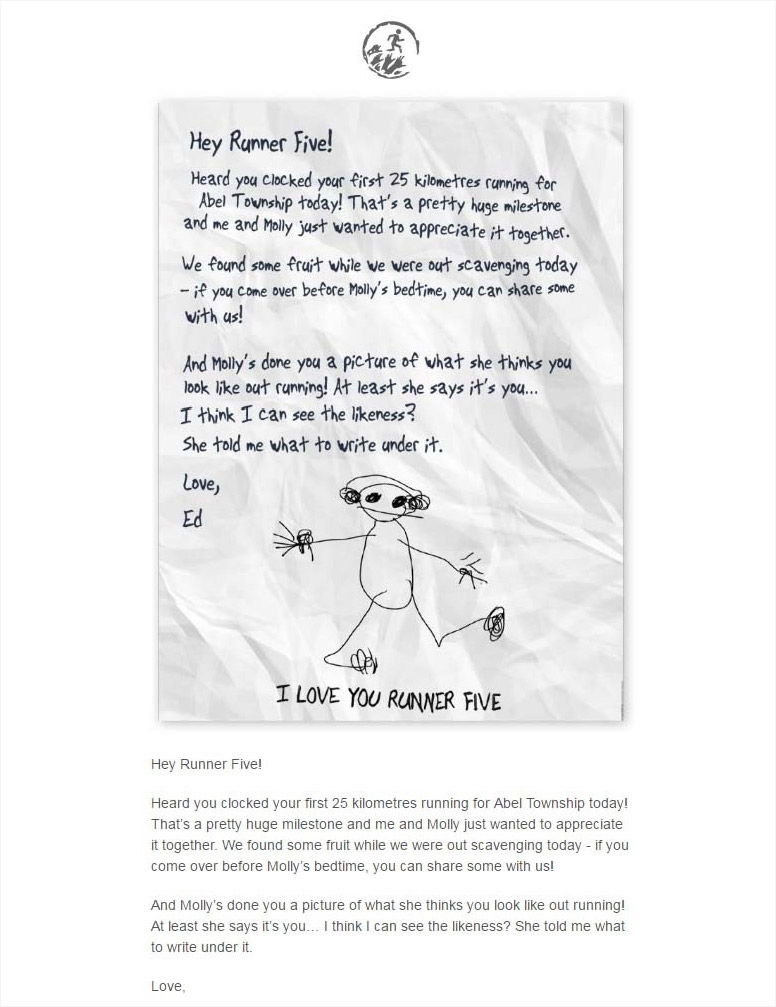 Hey Runner Five!
Heard you clocked your first 25 kilometres running for
Abel Township today! That's a pretty huge milestone
and me and Molly just wanted to appreciate it together.
We found some fruit while we were out scavenging today
- if you come over before Molly's bedtime, you can share some
with us!
And Molly's done you a picture of what she thinks you
look like out running! At least she says it's you...
I think I can see the likeness?
She told me what to write under it.
Love,
Ed
I LOVE YOU RUNNER FIVE
Hey Runner Five!
Heard you clocked your first 25 kilometres running for Abel Township today!
That's a pretty huge milestone and me and Molly just wanted to appreciate
it together. We found some fruit while we were out scavenging today - if you
come over before Molly's bedtime, you can share some with us!
And Molly's done you a picture of what she thinks you look like out running!
At least she says it's you… I think I can see the likeness? She told me what
to write under it.
Love,